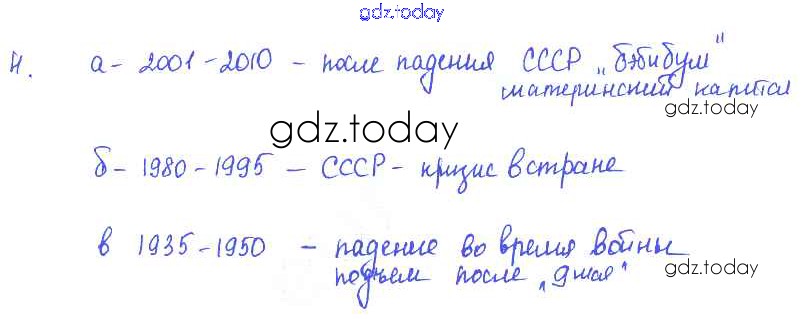 gdz.today
4. а - 2001 - 2010 - после падения СССР „бэбибум"
материнский капитал
gdz.today
gdz.today
б - 1980 - 1995 - СССР - кризис в стране
в 1935 - 1950 - падение во время войны
подъем после „9 мая"
gdz.today